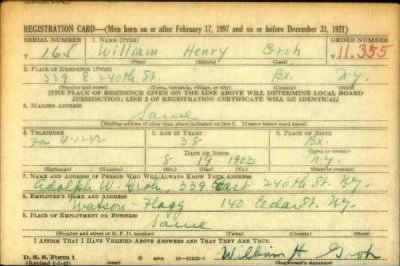 REGISTRATION CARD—(Men born on or after February 17, 1897 and on or before December 31, 1921)
SERIAL NUMBER 1. NAME (Print) ORDER NUMBER
T 165 William Henry Groh T 11,355
2. PLACE OF RESIDENCE (Print)
339 E. 240th St. Bx. N.Y.
(Number and street) (Town, township, village, or city) (County) (State)
[THE PLACE OF RESIDENCE GIVEN ON THE LINE ABOVE WILL DETERMINE LOCAL BOARD
JURISDICTION; LINE 2 OF REGISTRATION CERTIFICATE WILL BE IDENTICAL]
3. MAILING ADDRESS
Same
[Mailing address if other than place indicated on line 2. If same insert word same]
4. TELEPHONE 5. AGE IN YEARS 6. PLACE OF BIRTH
38 Bx.
DATE OF BIRTH
8 19 1903 N.Y.
(Exchange) (Number) (Mo.) (Day) (Yr.) (State or country)
7. NAME AND ADDRESS OF PERSON WHO WILL ALWAYS KNOW YOUR ADDRESS
Adolph W. Groh, 339 East 240th St. NY.
8. EMPLOYER'S NAME AND ADDRESS
Watson-Flagg 140 Cedar St. NY.
9. PLACE OF EMPLOYMENT OR BUSINESS
Same
(Number and street or R. F. D. number) (Town) (County) (State)
I AFFIRM THAT I HAVE VERIFIED ABOVE ANSWERS AND THAT THEY ARE TRUE.
D. S. S. Form 1 William H. Groh
(Registrant's signature)